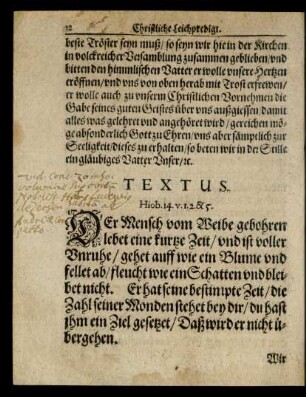 12 Christliche Leichpredigt.
beste Tröster seyn muß/ so seyn wir hie in der Kirchen
in volckreicher Versamblung zusammen geblieben/ vnd
bitten den himmlischen Vatter er wolle vnsere Hertzen
eröffnen/ vnd vns von oben herab mit Trost erfrewen/
er wolle auch zu vnserm Christlichen Vornehmen die
Gabe seines guten Geistes über vns außgiessen/ damit
alles was gelehret vnd angehöret wird/ gereichen mö-
ge absonderlich Gott zu Ehren/ vns aber sämptlich zur
Seeligkeit/ dieses zu erhalten/ so beten wir in der Stille
ein gläubiges Vatter Vnser/ ꝛc.
TEXTUS.
Hiob. 14. v. 1. 2. & 5.
DEr Mensch vom Weibe gebohren
lebet eine kurtze Zeit/ vnd ist voller
Vnruhe/ gehet auff wie ein Blume vnd
fellet ab/ fleucht wie ein Schatten vnd blei-
bet nicht. Er hat seine bestimpte Zeit/ die
Zahl seiner Monden stehet bey dir/ du hast
jhm ein Ziel gesetzet/ Daß wird er nicht ü-
bergehen.
Wir